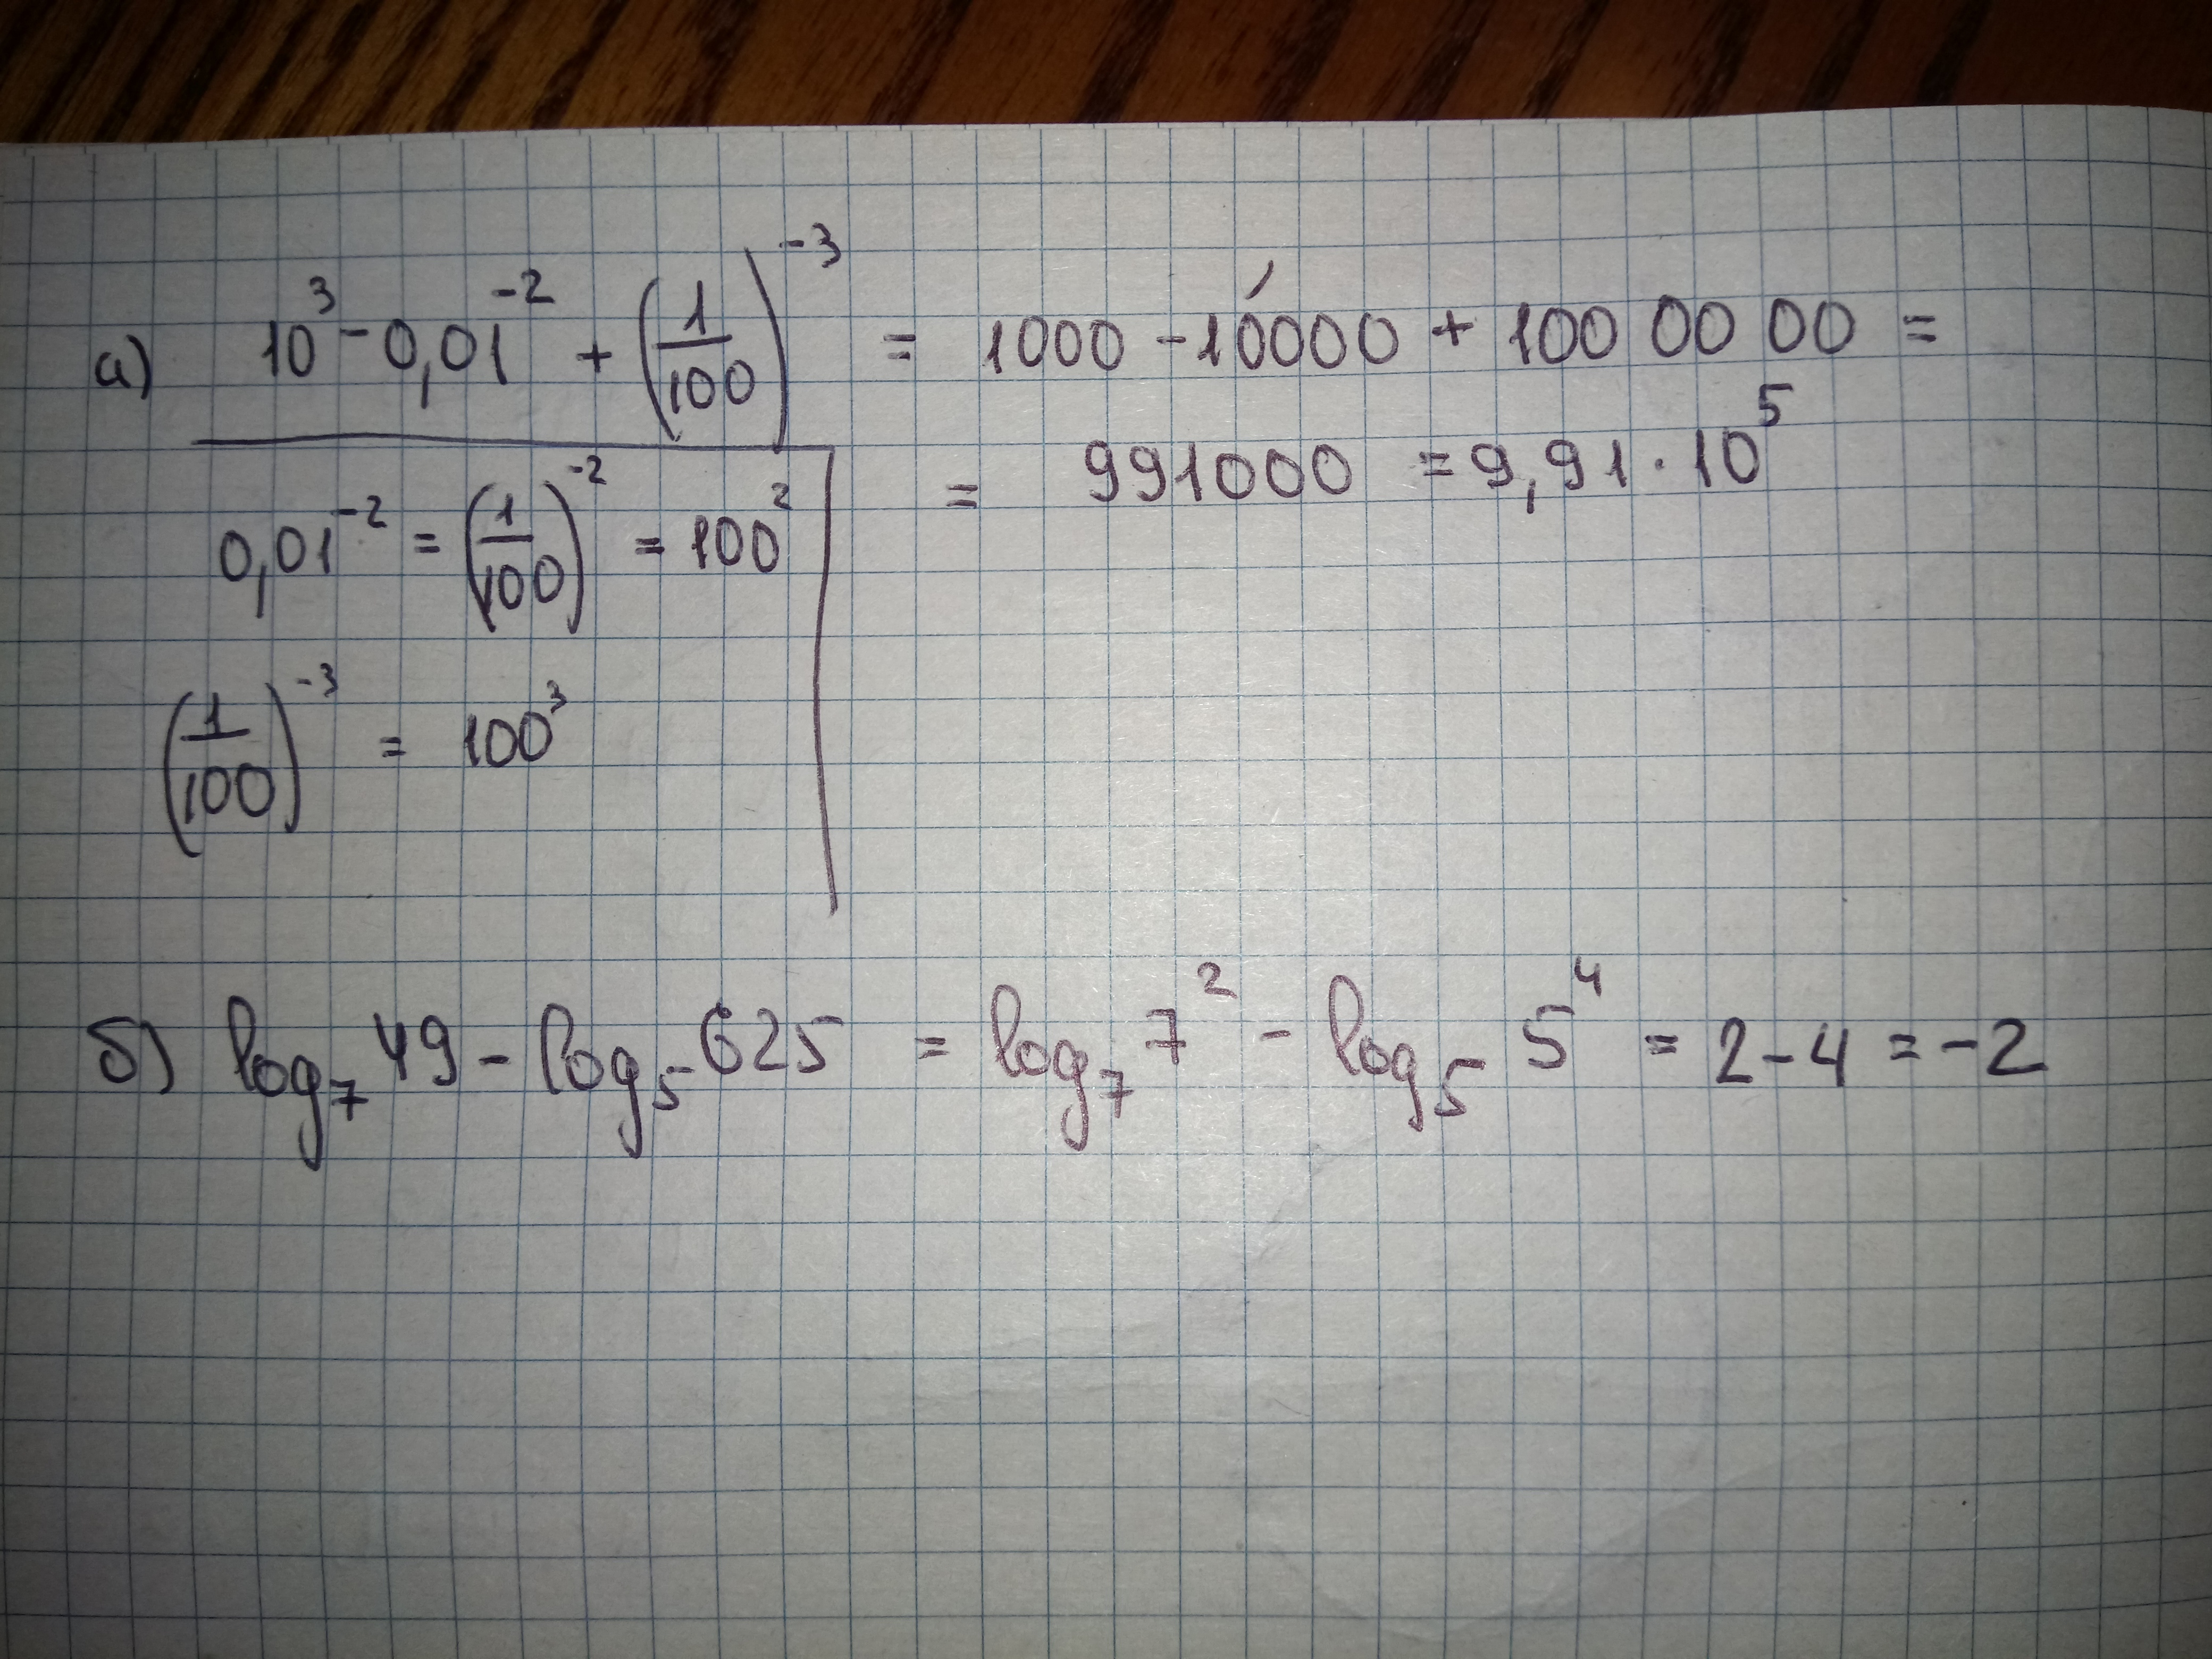 а) 10³ - 0,01⁻² + (1/100)⁻³ = 1000 - 10000 + 100 00 00 =
= 991000 = 9,91 · 10⁵
0,01⁻² = (1/100)⁻² = 100²
(1/100)⁻³ = 100³
б) log₇ 49 - log₅ 625 = log₇ 7² - log₅ 5⁴ = 2 - 4 = -2